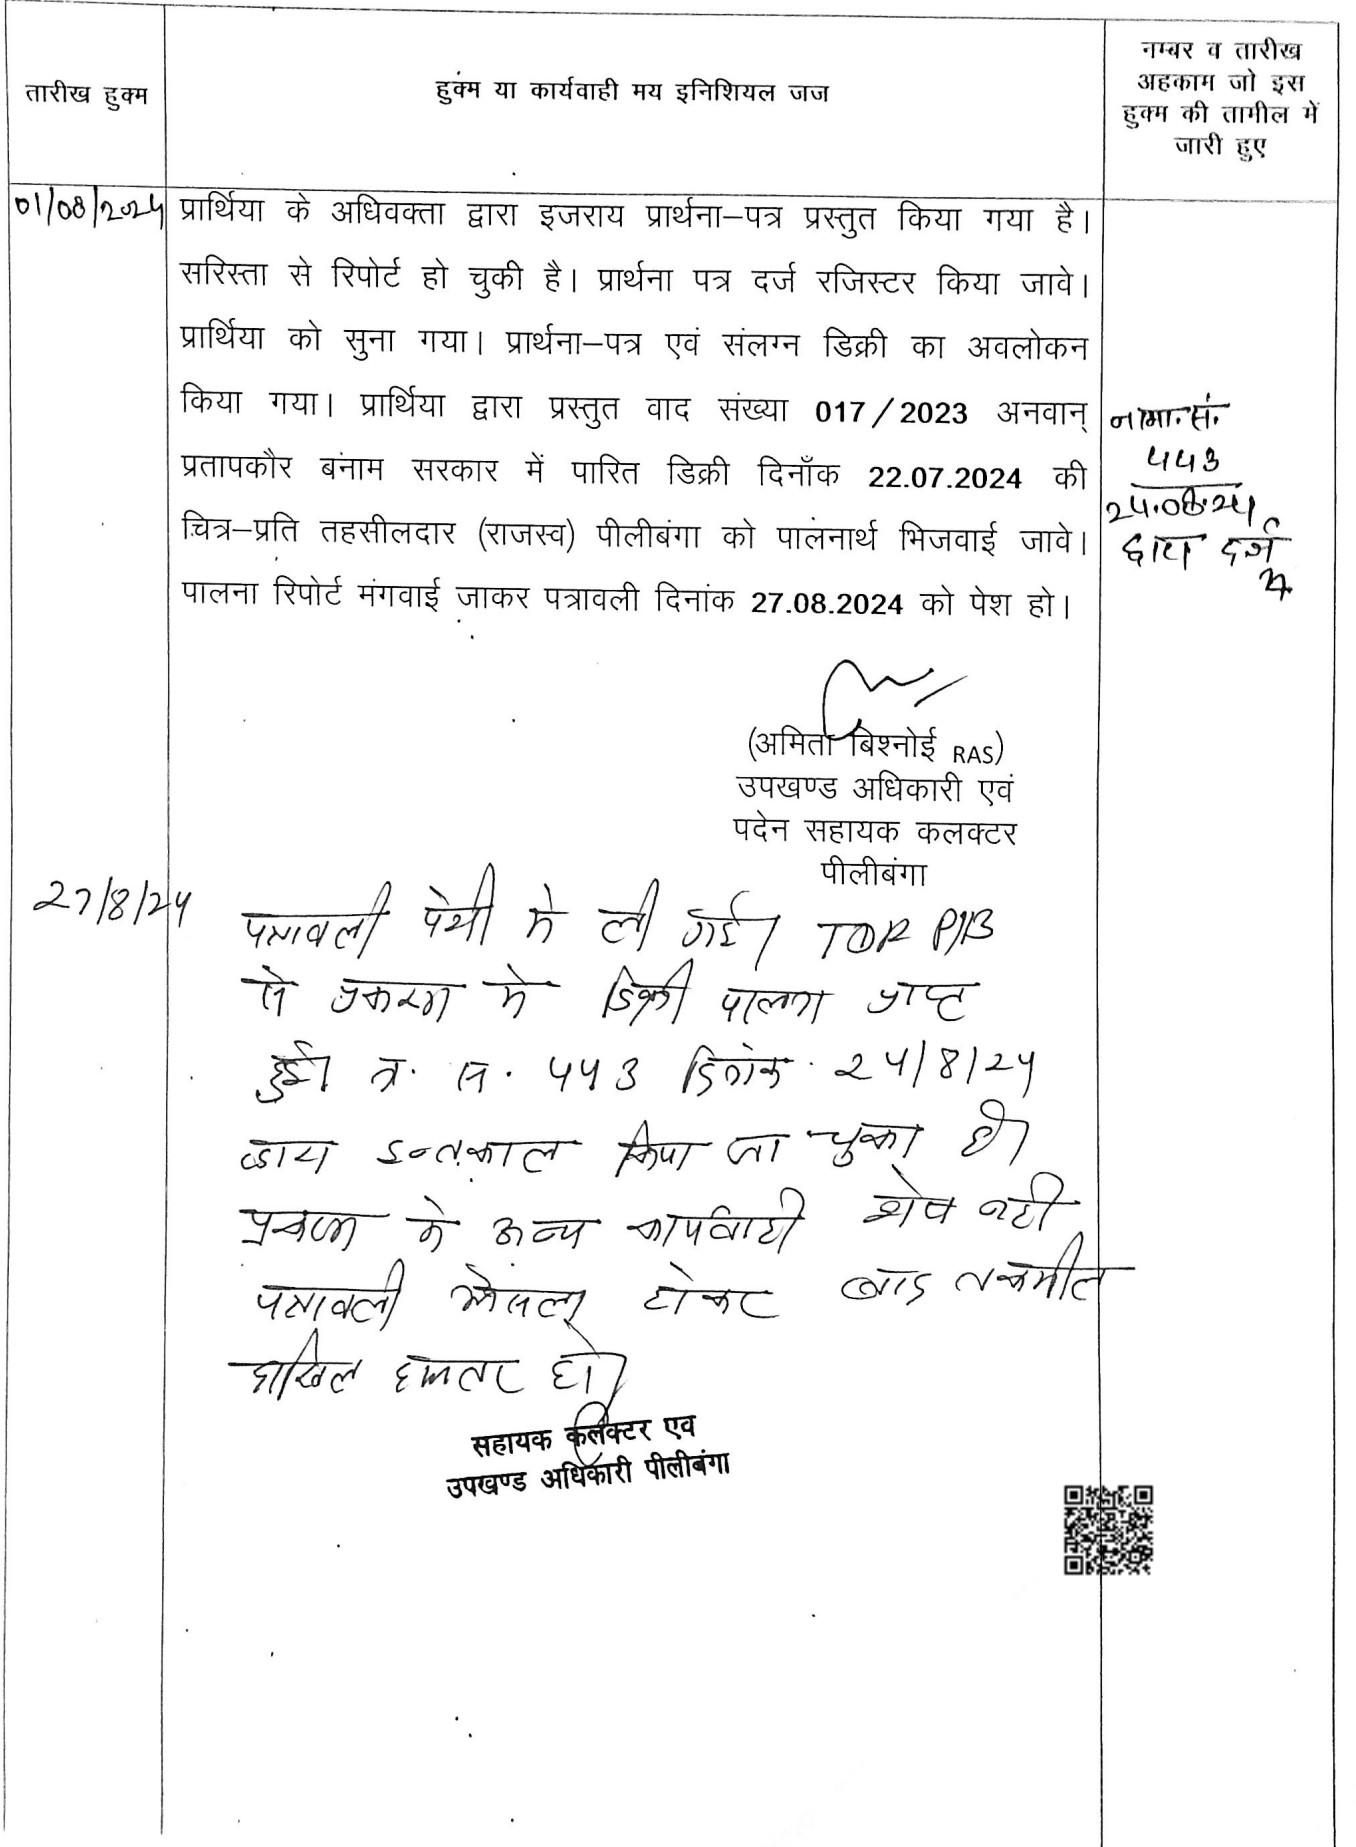 तारीख हुक्म
हुक्म या कार्यवाही मय इनिशियल जज
नम्बर व तारीख
अहकाम जो इस
हुक्म की तामील में
जारी हुए
01/08/2024
प्रार्थिया के अधिवक्ता द्वारा इजराय प्रार्थना–पत्र प्रस्तुत किया गया है।
सरिस्ता से रिपोर्ट हो चुकी है। प्रार्थना पत्र दर्ज रजिस्टर किया जावे।
प्रार्थिया को सुना गया। प्रार्थना–पत्र एवं संलग्न डिक्री का अवलोकन
किया गया। प्रार्थिया द्वारा प्रस्तुत वाद संख्या 017/2023 अनवान्
प्रतापकौर बनाम सरकार में पारित डिक्री दिनाँक 22.07.2024 की
चित्र–प्रति तहसीलदार (राजस्व) पीलीबंगा को पालनार्थ भिजवाई जावे।
पालना रिपोर्ट मंगवाई जाकर पत्रावली दिनांक 27.08.2024 को पेश हो।
नामा.सं.
443
24.08.24
द्वारा दर्ज
(अमिता बिश्नोई RAS)
उपखण्ड अधिकारी एवं
पदेन सहायक कलक्टर
पीलीबंगा
27/8/24
पत्रावली पेशी मे ली गई। TDR PBB
से प्रकरण मे डिक्री पालना प्राप्त
हुई। न. स. 443 दिनांक 24/8/24
द्वारा इन्तकाल किया जा चुका है।
प्रकरण मे अन्य कार्यवाही शेष नही
पत्रावली फैसल होकर बाद तकमील
दाखिल दफ्तर हो।
सहायक कलेक्टर एव
उपखण्ड अधिकारी पीलीबंगा